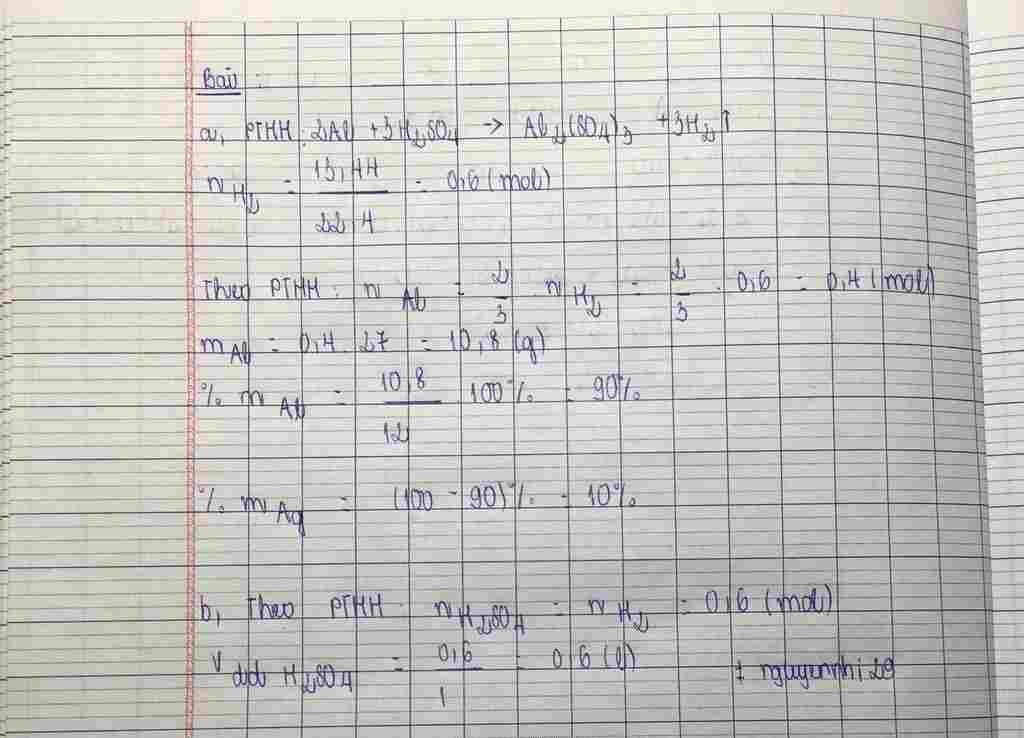 Bài :
a, PTHH: 2Al + 3H₂SO₄ → Al₂(SO₄)₃ + 3H₂↑
n H₂ = 13,44 / 22,4 = 0,6 (mol)
Theo PTHH: n Al = 2/3 n H₂ = 2/3 . 0,6 = 0,4 (mol)
m Al = 0,4 . 27 = 10,8 (g)
% m Al = 10,8 / 12 . 100% = 90%
% m Ag = (100 - 90)% = 10%
b, Theo PTHH: n H₂SO₄ = n H₂ = 0,6 (mol)
V dd H₂SO₄ = 0,6 / 1 = 0,6 (l)